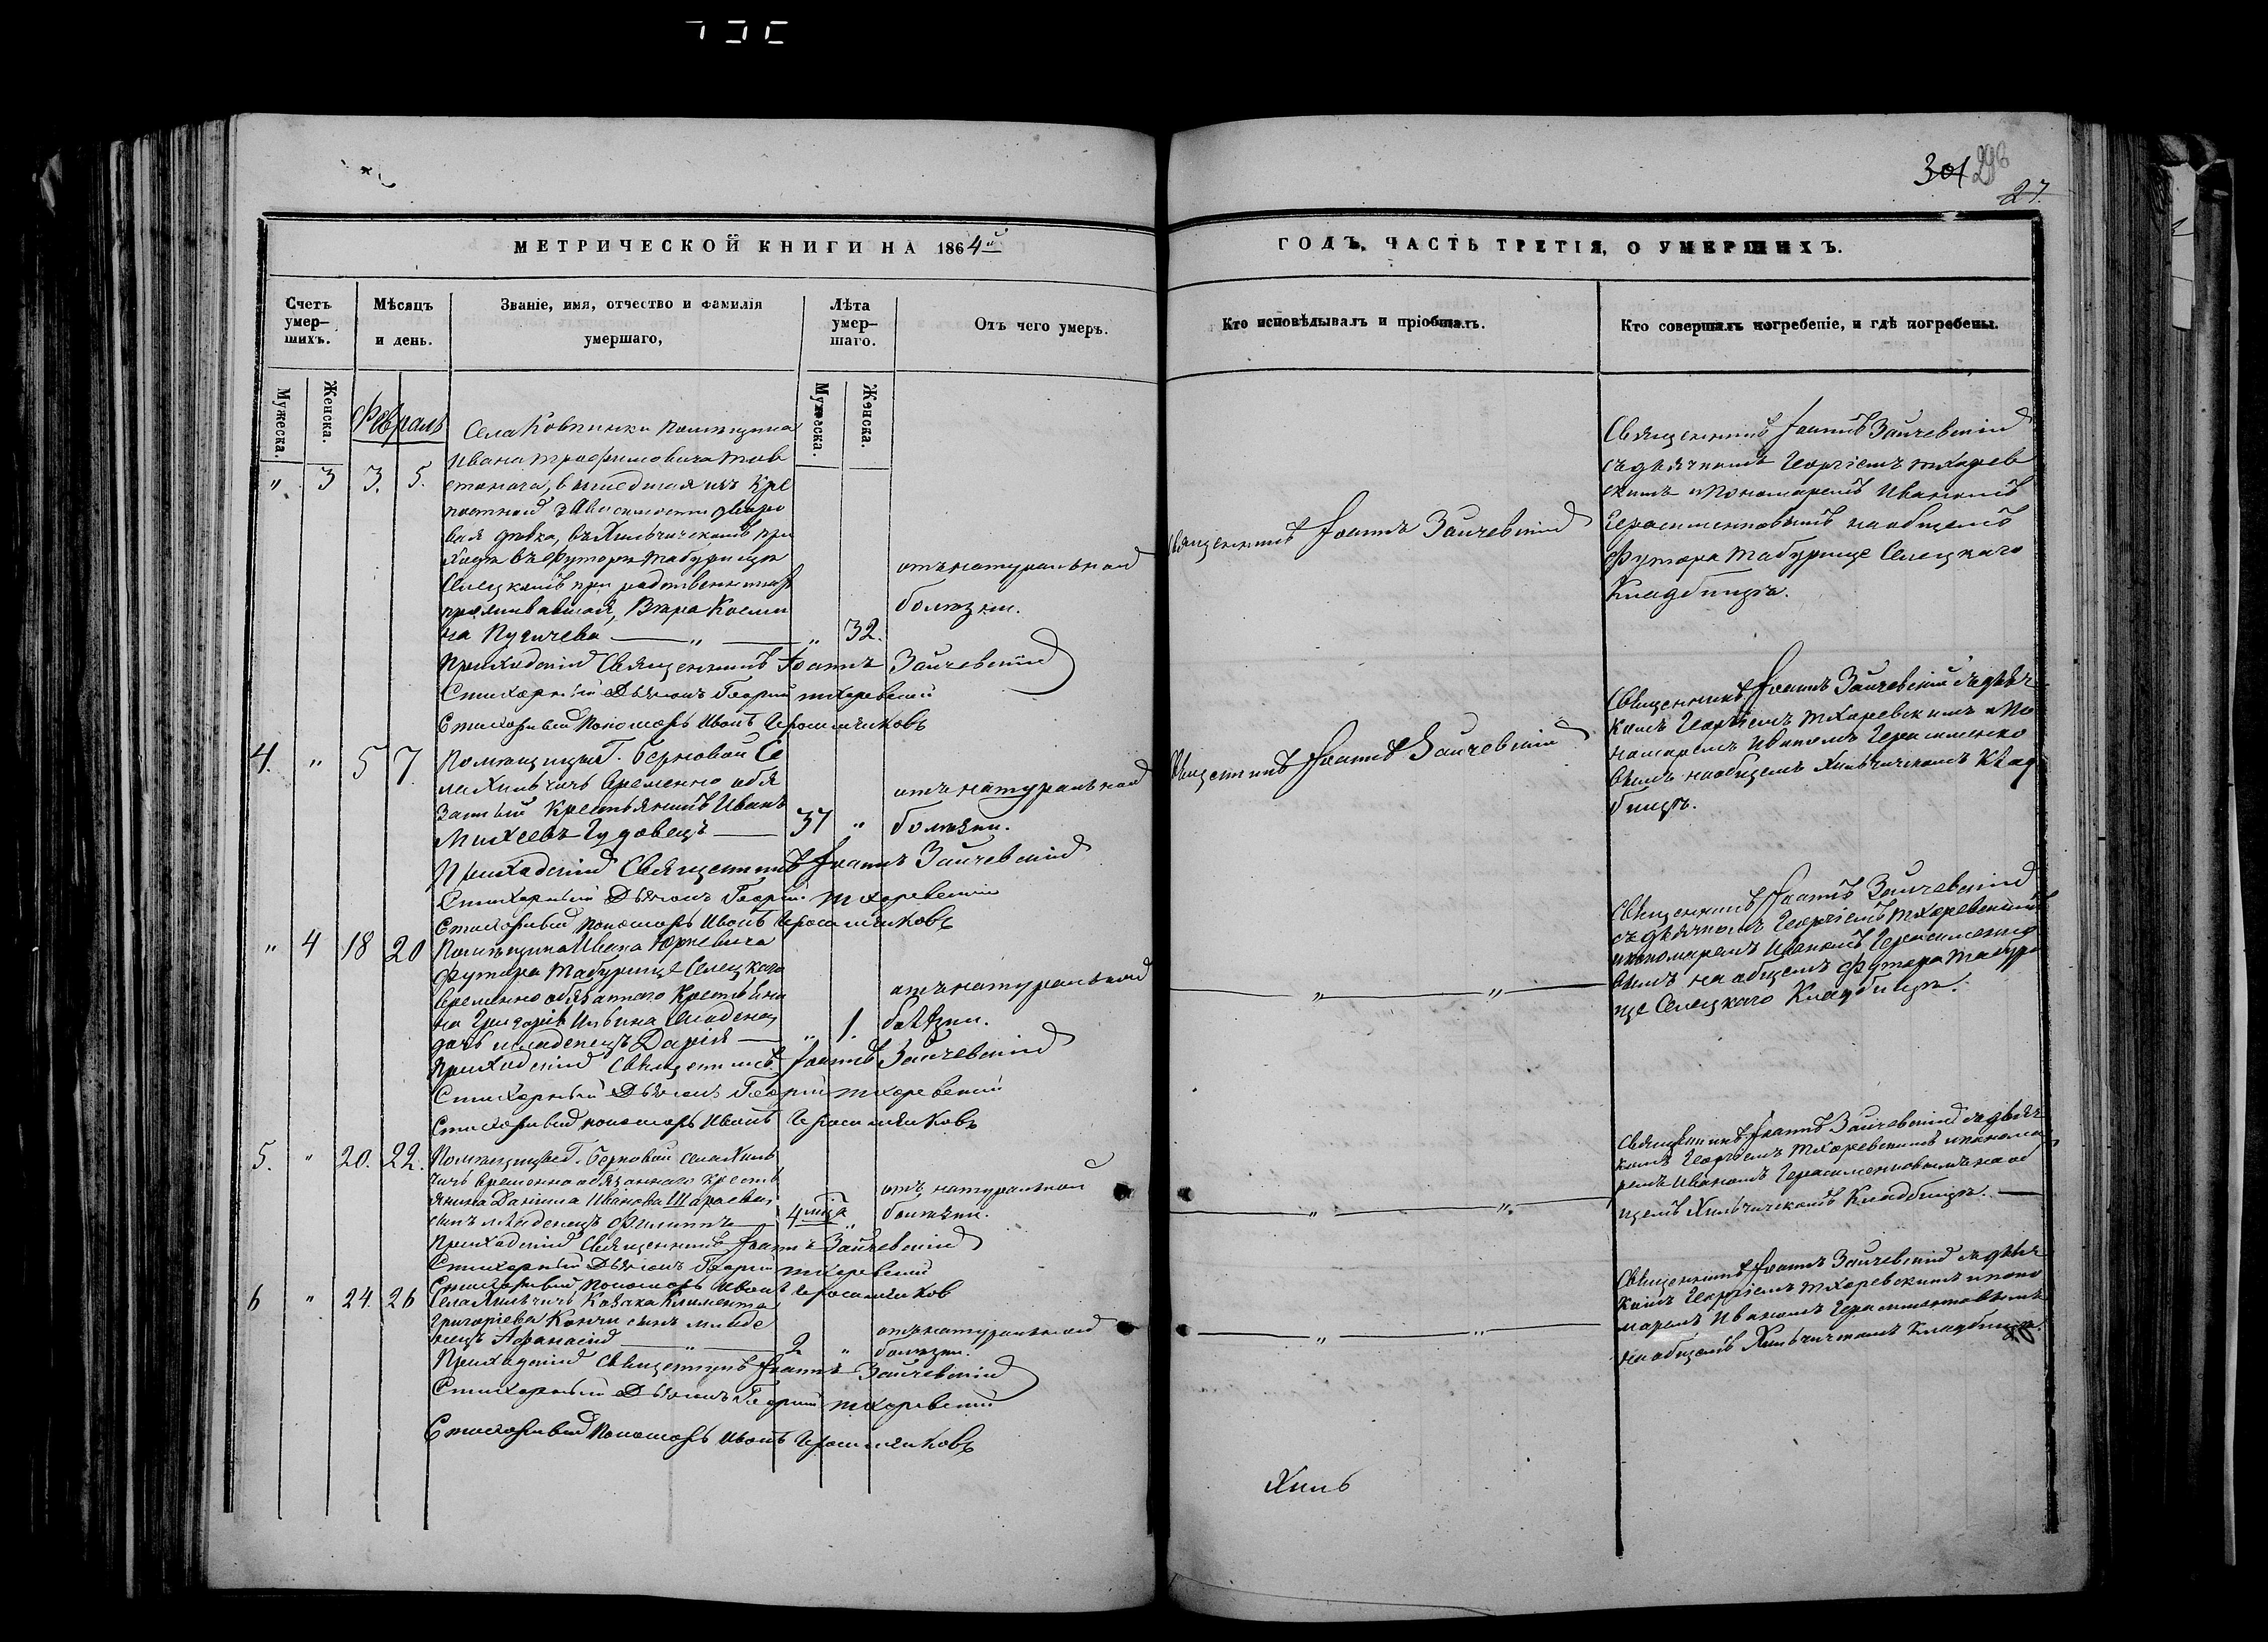 301 296
27.
МЕТРИЧЕСКОЙ КНИГИ НА 1864й
ГОДЪ, ЧАСТЬ ТРЕТІЯ, О УМЕРШИХЪ.
Счетъ умер-
шихъ.
Мѣсяцъ
и день.
Званіе, имя, отчество и фамилія
умершаго,
Лѣта
умер-
шаго.
Отъ чего умеръ.
Кто исповѣдывалъ и пріобщалъ.
Кто совершалъ погребеніе, и гдѣ погребены.
Мужеска.
Женска.
Мужеска.
Женска.
Февраль
Села Ковпинки помѣщика
Ивана Трофимовича
" 3 3. 5.
вая дѣвка, въ Хильчичскомъ при
ходѣ въ футорѣ Табурище
Селецкомъ при родственникахъ
проживавшая, Вѣра Косми
на Пузичева " 32.
отъ натуральной
болѣзни.
Священникъ Іоаннъ Зайчевскій
Священникъ Іоаннъ Зайчевскій
съ дьячкомъ Георгіемъ Тихорев
скимъ и Пономаремъ Иваномъ
Герасименковымъ на общемъ
футора Табурище Селецкаго
Кладбищѣ.
Приходскій Священникъ Іоаннъ Зайчевскій
Стихарный Дьячокъ Георгій Тихоревскій
Стихарный Пономарь Иванъ Герасименковъ
4. " 5 7.
Помѣщицы Г. Берновой Се
ла Хильчичъ временно обя
занный крестьянинъ Иванъ
Михеевъ Гудовецъ 37 "
отъ натуральной
болѣзни.
Священникъ Іоаннъ Зайчевскій
Священникъ Іоаннъ Зайчевскій съ дьяч
комъ Георгіемъ Тихоревскимъ и По
номаремъ Иваномъ Герасименко
вымъ на общемъ Хильчичскомъ Клад
бищѣ.
Приходскій Священникъ Іоаннъ Зайчевскій
Стихарный Дьячокъ Георгій Тихоревскій
Стихарный Пономарь Иванъ Герасименковъ
" 4 18 20
Помѣщика Ивана Юркевича
футора Табурище Селецкаго
временно обязаннаго крестьяни
на Григорія Ильина
дочь младенецъ Дарія " 1.
отъ натуральной
болѣзни.
" "
Священникъ Іоаннъ Зайчевскій
съ дьячкомъ Георгіемъ Тихоревскимъ
и пономаремъ Иваномъ Герасименко
вымъ на общемъ футора Табури
ще Селецкаго Кладбищѣ.
Приходскій Священникъ Іоаннъ Зайчевскій
Стихарный Дьячокъ Георгій Тихоревскій
Стихарный пономарь Иванъ Герасименковъ
5. " 20. 22.
Помѣщицы Г. Берновой села Хиль
чичъ временно обязаннаго кресть
янина Даніила Иванова Шараева,
сынъ младенецъ Филиппъ 4 мѣ "
отъ натуральной
болѣзни.
" "
Священникъ Іоаннъ Зайчевскій съ дьяч
комъ Георгіемъ Тихоревскимъ и понома
ремъ Иваномъ Герасименковымъ на об
щемъ Хильчичскомъ Кладбищѣ.
Приходскій Священникъ Іоаннъ Зайчевскій
Стихарный Дьячокъ Георгій Тихоревскій
Стихарный Пономарь Иванъ Герасименков
6 " 24. 26
Села Хильчичъ Козака Климента
Григоріева Кончи сынъ младе
нецъ Афанасій 2 "
отъ натуральной
болѣзни.
" "
Священникъ Іоаннъ Зайчевскій съ дьяч
комъ Георгіемъ Тихоревскимъ и поно
маремъ Иваномъ Герасименковымъ
на общемъ Хильчичскомъ Кладбищѣ.
Приходскій Священникъ Іоаннъ Зайчевскій
Стихарный Дьячокъ Георгій Тихоревскій
Стихарный Пономарь Иванъ Герасименковъ
Хиль